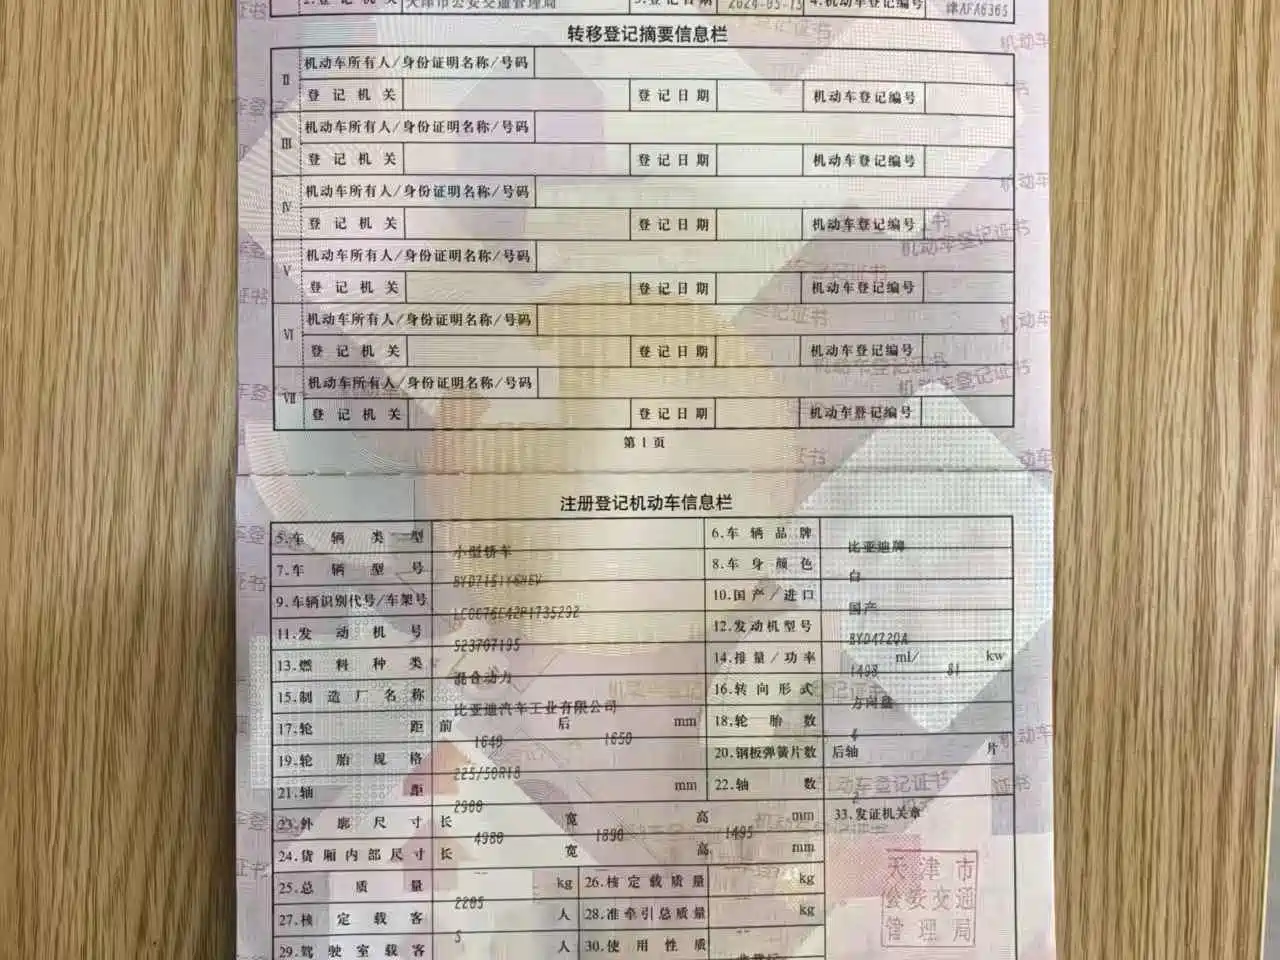 2.登记机关 天津市公安交通管理局 3.登记日期 2024-05-15 4.机动车登记编号 津AFA6365
转移登记摘要信息栏
II 机动车所有人/身份证明名称/号码
登记机关 登记日期 机动车登记编号
III 机动车所有人/身份证明名称/号码
登记机关 登记日期 机动车登记编号
IV 机动车所有人/身份证明名称/号码
登记机关 登记日期 机动车登记编号
V 机动车所有人/身份证明名称/号码
登记机关 登记日期 机动车登记编号
VI 机动车所有人/身份证明名称/号码
登记机关 登记日期 机动车登记编号
VII 机动车所有人/身份证明名称/号码
登记机关 登记日期 机动车登记编号
第1页
注册登记机动车信息栏
5.车辆类型 小型轿车 6.车辆品牌 比亚迪牌
7.车辆型号 8.车身颜色 白
9.车辆识别代号/车架号 10.国产/进口 国产
11.发动机号 523707195 12.发动机型号 BYD472QA
13.燃料种类 混合动力 14.排量/功率 1498 ml/ 81 kw
15.制造厂名称 比亚迪汽车工业有限公司 16.转向形式 方向盘
17.轮距 前 1640 后 1650 mm 18.轮胎数 4
19.轮胎规格 225/50R18 20.钢板弹簧片数 后轴 片
21.轴距 2900 mm 22.轴数 2
23.外廓尺寸 长 4980 宽 1890 高 1495 mm 33.发证机关章
24.货厢内部尺寸 长 宽 高 mm
25.总质量 2205 kg 26.核定载质量 kg
27.核定载客 5 人 28.准牵引总质量 kg
29.驾驶室载客 人 30.使用性质
天津市
公安交通
管理局